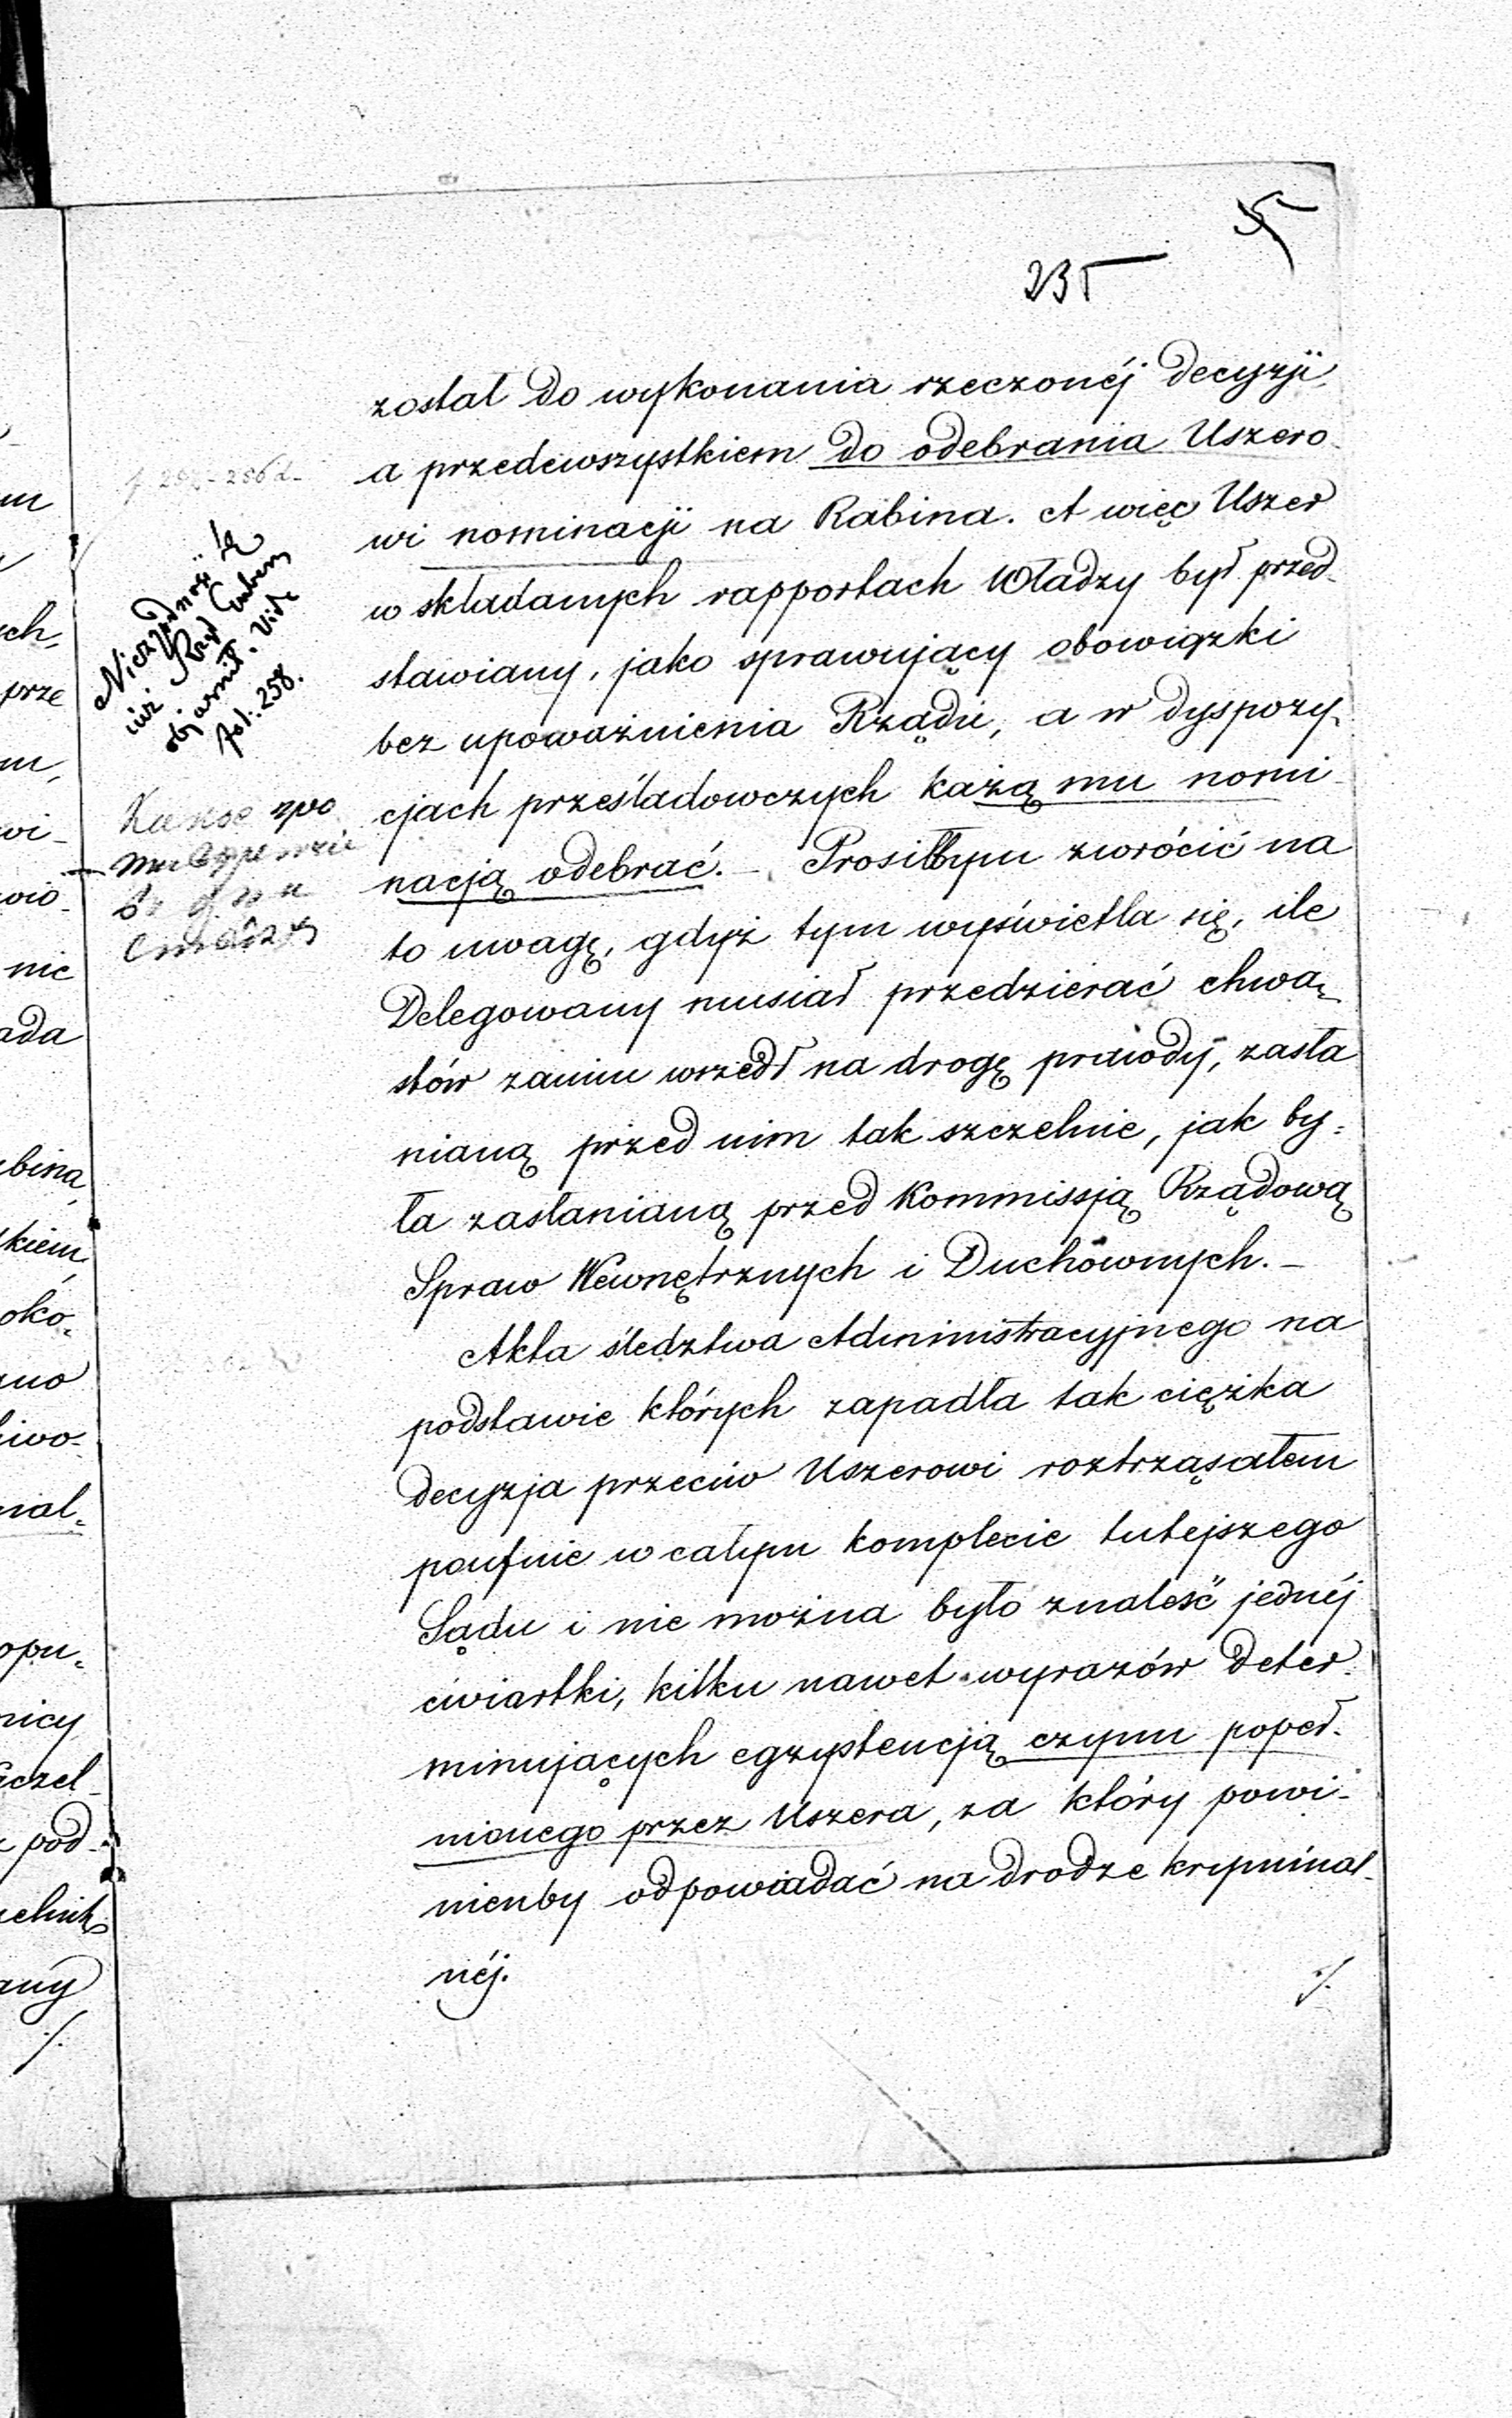 235
został do wykonania rzeczonéj decyzji
a przedewszystkiem do odebrania Uszero-
wi nominacji na Rabina. A więc Uszer
w składanych rapportach Władzy był przed-
stawiany, jako sprawujący obowiązki
bez upoważnienia Rządu, a w dyspozy-
cjach prześladowczych każą mu nomi-
nacją odebrać. — Prosiłbym zwrócić na
to uwagę, gdyż tym wyświetla się, ile
Delegowany musiał przedzierać chwa-
stów zanim wszedł na drogę prawdy, zasła
nianą przed nim tak szczelnie, jak by=
ła zasłanianą przed Kommissją Rządową
Spraw Wewnętrznych i Duchownych. —
Akta śledztwa Administracyjnego na
podstawie których zapadła tak ciężka
decyzja przeciw Uszerowi roztrząsałem
poufnie w całym komplecie tutejszego
Sądu i nie można było znaleść jednéj
ćwiartki, kilku nawet wyrazów deter-
minujących egzystencją czynu popeł-
nionego przez Uszera, za który powi-
nienby odpowiadać na drodze kryminal-
néj.
./.
objasnił. Vide
fol: 258.
m
ch,
prze
m,
wi-
wio-
nie
ada
bina,
kiem,
oko-
no
iwo-
nal-
opu-
nicy
czel-
pod-
any
./.